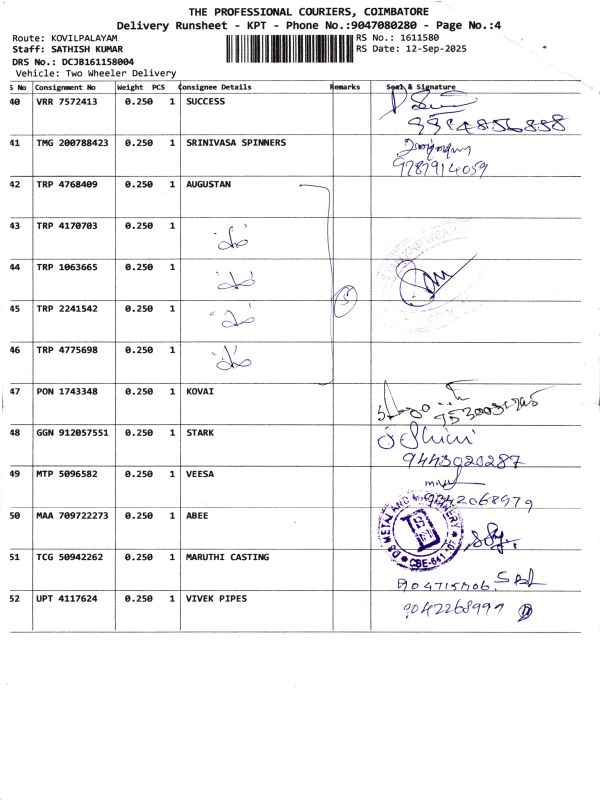 THE PROFESSIONAL COURIERS, COIMBATORE
Delivery Runsheet - KPT - Phone No.:9047080280 - Page No.:4
Route: KOVILPALAYAM RS No.: 1611580
Staff: SATHISH KUMAR RS Date: 12-Sep-2025
DRS No.: DCJB161158004
Vehicle: Two Wheeler Delivery
S No Consignment No Weight PCS Consignee Details Remarks Seal & Signature
40 VRR 7572413 0.250 1 SUCCESS
41 TMG 200788423 0.250 1 SRINIVASA SPINNERS
9787914059
42 TRP 4768409 0.250 1 AUGUSTAN
43 TRP 4170703 0.250 1
44 TRP 1063665 0.250 1
5
45 TRP 2241542 0.250 1
46 TRP 4775698 0.250 1
47 PON 1743348 0.250 1 KOVAI
48 GGN 912057551 0.250 1 STARK
9443020287
49 MTP 5096582 0.250 1 VEESA
9842068979
50 MAA 709722273 0.250 1 ABEE
METAL AND MACHINERY
CBE-641
51 TCG 50942262 0.250 1 MARUTHI CASTING
52 UPT 4117624 0.250 1 VIVEK PIPES
9042268999